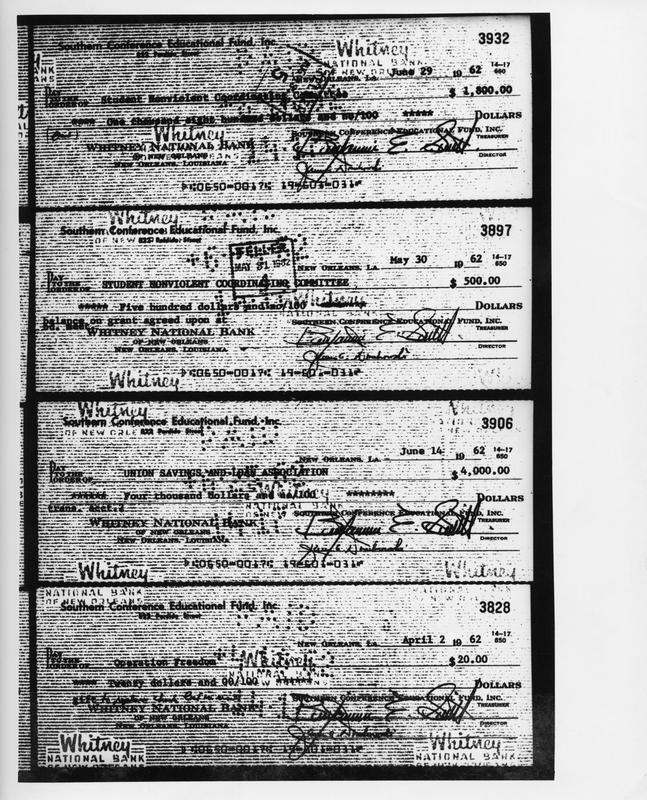 Southern Conference Educational Fund, Inc.
Whitney
NATIONAL BANK
3932
NEW ORLEANS, LA. June 29 19 62 14-17
650
PAY
TO THE
ORDER OF Student Nonviolent Coordinating Committee $ 1,800.00
One thousand eight hundred dollars and no/100 ***** DOLLARS
Whitney
WHITNEY NATIONAL BANK
OF NEW ORLEANS
NEW ORLEANS, LOUISIANA
SOUTHERN CONFERENCE EDUCATIONAL FUND, INC.
TREASURER
Benjamin E. Smith
DIRECTOR
Whitney
Southern Conference Educational Fund, Inc.
OF NEW 822 Perdido Street
3897
MAY 31 1962
NEW ORLEANS, LA. May 30 19 62 14-17
650
PAY
TO THE
ORDER OF STUDENT NONVIOLENT COORDINATING COMMITTEE $ 500.00
***** Five hundred dollars and no/100 DOLLARS
grant agreed upon
WHITNEY NATIONAL BANK
OF NEW ORLEANS
NEW ORLEANS, LOUISIANA
SOUTHERN CONFERENCE EDUCATIONAL FUND, INC.
TREASURER
Benjamin E. Smith
DIRECTOR
James A. Dombrowski
Whitney
Whitney
Southern Conference Educational Fund, Inc.
822 Perdido Street
3906
NEW ORLEANS, LA. June 14 19 62 14-17
650
PAY
TO THE
ORDER OF UNION SAVINGS AND LOAN ASSOCIATION $ 4,000.00
****** Four thousand dollars and no/100 ******** DOLLARS
trans. acct.
WHITNEY NATIONAL BANK
OF NEW ORLEANS
NEW ORLEANS, LOUISIANA
SOUTHERN CONFERENCE EDUCATIONAL FUND, INC.
TREASURER
Benjamin E. Smith
DIRECTOR
James A. Dombrowski
Whitney
Whitney
NATIONAL BANK
OF NEW ORLEANS
Southern Conference Educational Fund, Inc.
3828
NEW ORLEANS, LA. April 2 19 62 14-17
650
PAY
TO THE
ORDER OF Operation Freedom $ 20.00
Twenty dollars and 00/100 DOLLARS
Whitney
WHITNEY NATIONAL BANK
OF NEW ORLEANS
NEW ORLEANS, LOUISIANA
SOUTHERN CONFERENCE EDUCATIONAL FUND, INC.
TREASURER
Benjamin E. Smith
DIRECTOR
Whitney
NATIONAL BANK
Whitney
NATIONAL BANK